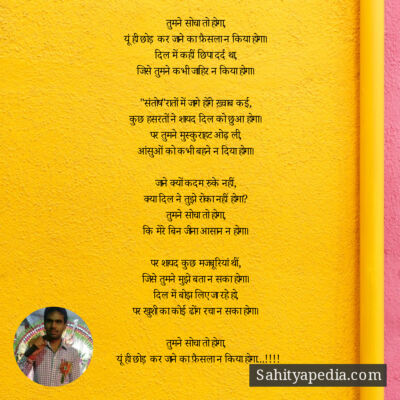 तुमने सोचा तो होगा,
यूं ही छोड़ कर जाने का फ़ैसला न किया होगा।
दिल में कहीं छिपा दर्द था,
जिसे तुमने कभी जाहिर न किया होगा।
"संतोष"रातों में जागे होंगे ख़्वाब कई,
कुछ हसरतों ने शायद दिल को छुआ होगा।
पर तुमने मुस्कुराहट ओढ़ ली,
आंसुओं को कभी बहने न दिया होगा।
जाने क्यों कदम रुके नहीं,
क्या दिल ने तुझे रोका नहीं होगा?
तुमने सोचा तो होगा,
कि मेरे बिन जीना आसान न होगा।
पर शायद कुछ मजबूरियां थीं,
जिसे तुमने मुझे बता न सका होगा।
दिल में बोझ लिए जा रहे हो,
पर खुशी का कोई ढोंग रचा न सका होगा।
तुमने सोचा तो होगा,
यूं ही छोड़ कर जाने का फ़ैसला न किया होगा...!!!!
Sahityapedia.com